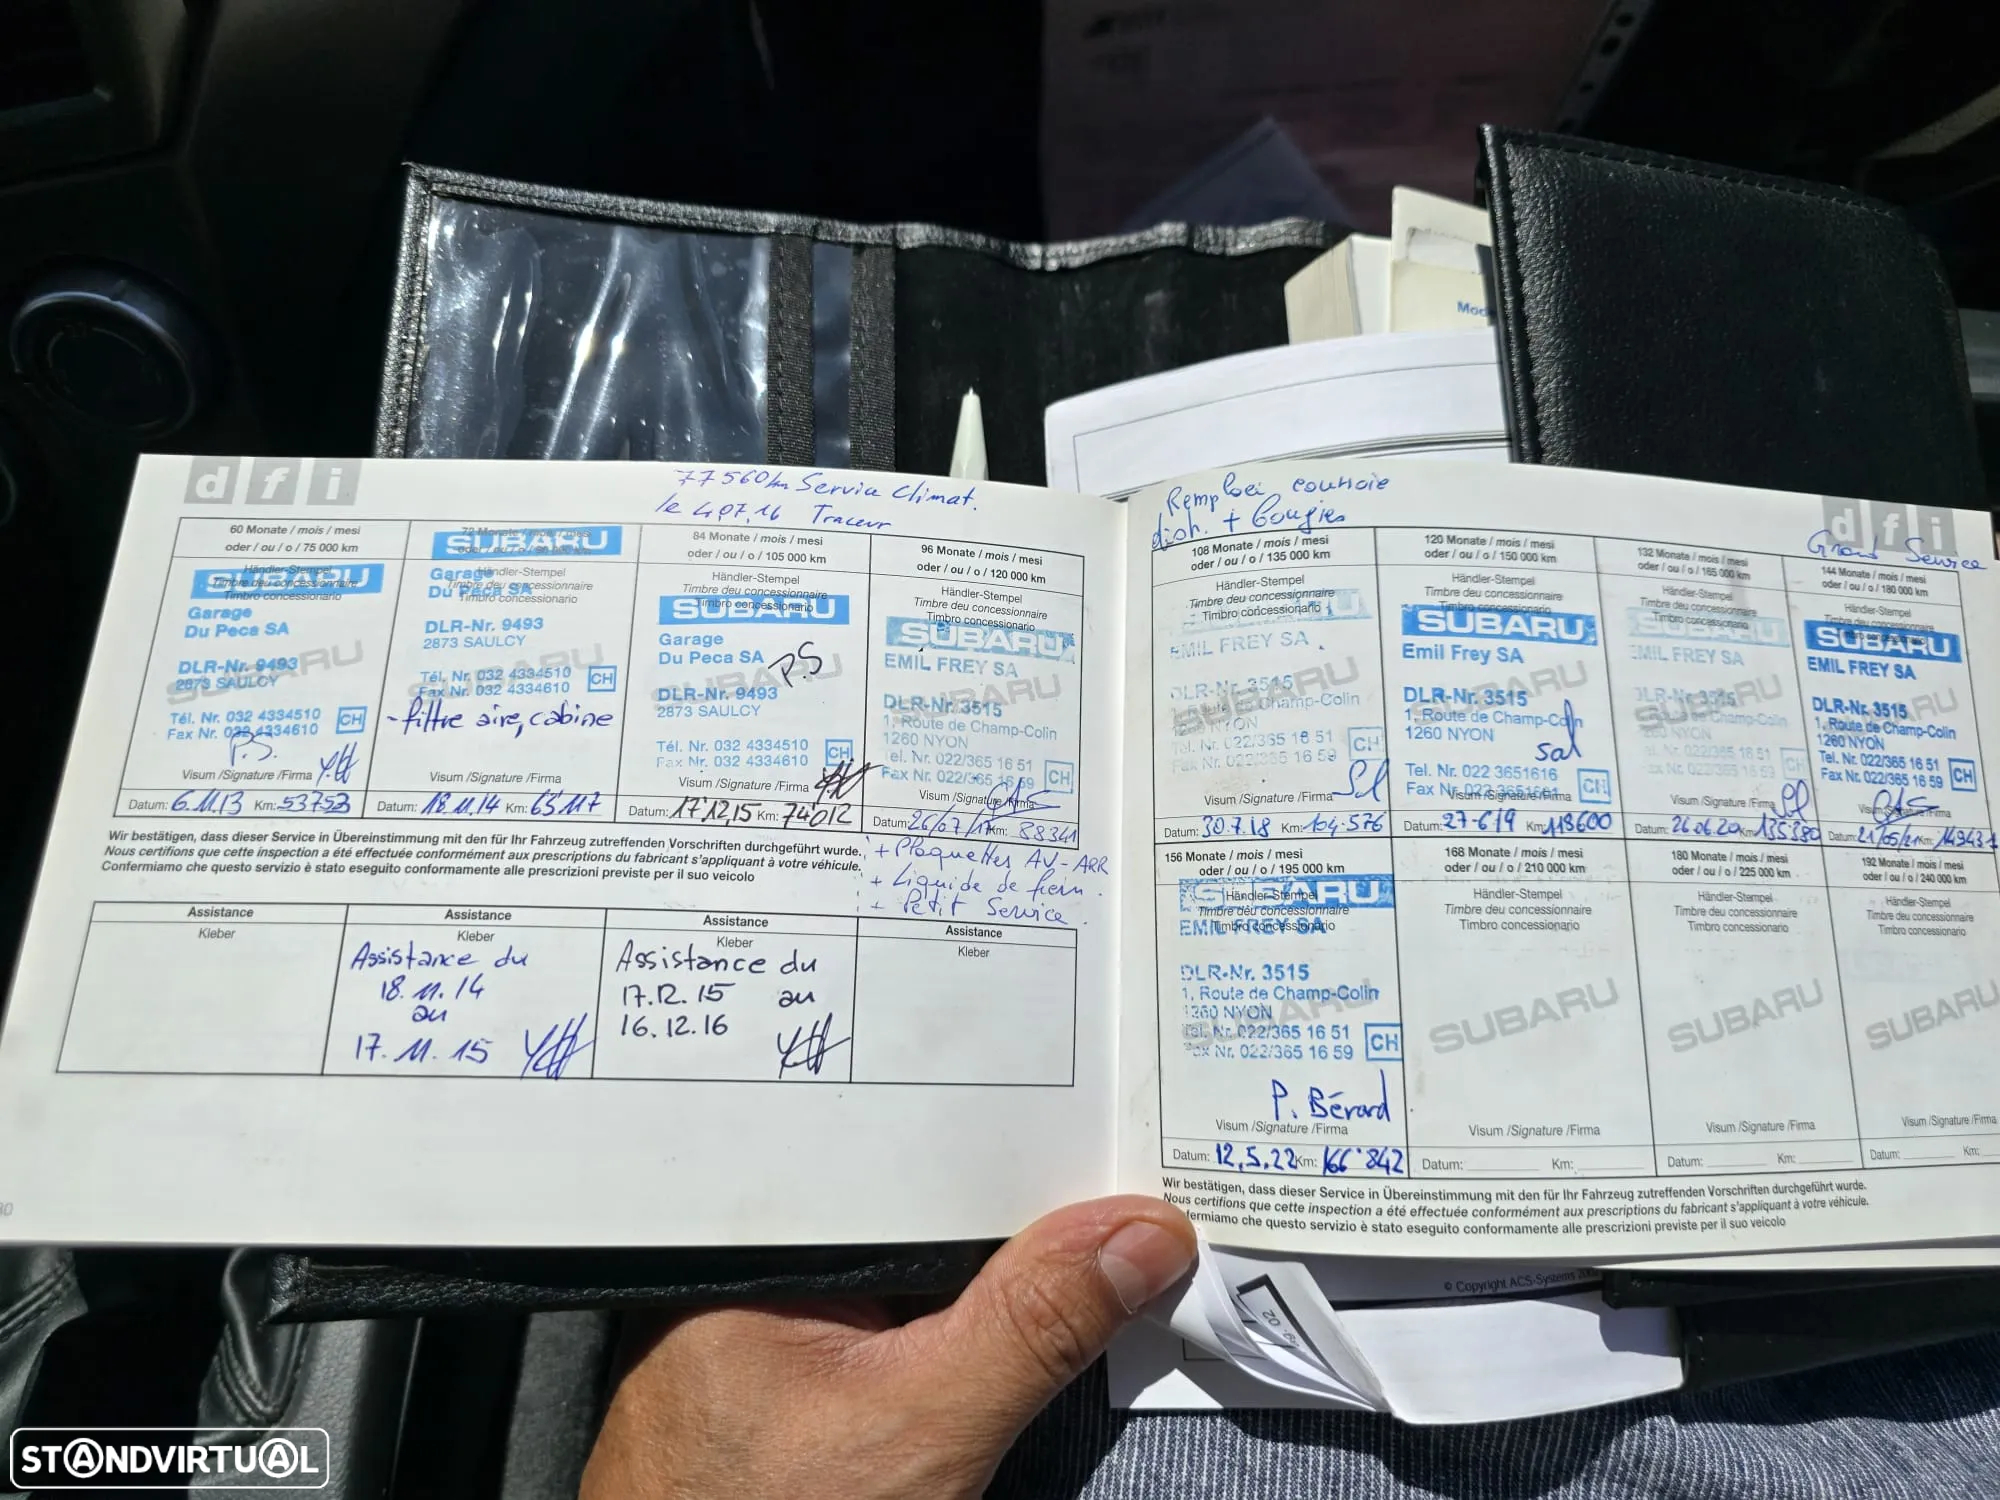 Mod
d f i
77560km Service Climat.
le 4.07.16 Traceur
60 Monate / mois / mesi
oder / ou / o / 75 000 km
SUBARU
Händler-Stempel
Timbre deu concessionnaire
Timbro concessionario
Garage
Du Peca SA
DLR-Nr. 9493
2873 SAULCY
SUBARU
Tél. Nr. 032 4334510
Fax Nr. 032 4334610
CH
P.S.
Visum /Signature /Firma
Datum: 6.11.13 Km: 53753
72 Monate / mois / mesi
SUBARU
Händler-Stempel
Timbre deu concessionnaire
Timbro concessionario
Garage
Du Peca SA
DLR-Nr. 9493
2873 SAULCY
SUBARU
Tél. Nr. 032 4334510
Fax Nr. 032 4334610
CH
- filtre aire, cabine
Visum /Signature /Firma
Datum: 18.11.14 Km: 63'117
84 Monate / mois / mesi
oder / ou / o / 105 000 km
Händler-Stempel
Timbre deu concessionnaire
SUBARU
Timbro concessionario
Garage
Du Peca SA
P.S
SUBARU
DLR-Nr. 9493
2873 SAULCY
Tél. Nr. 032 4334510
Fax Nr. 032 4334610
CH
Visum /Signature /Firma
Datum: 17.12.15 Km: 74'012
96 Monate / mois / mesi
oder / ou / o / 120 000 km
Händler-Stempel
Timbre deu concessionnaire
Timbro concessionario
SUBARU
EMIL FREY SA
SUBARU
DLR-Nr. 3515
1, Route de Champ-Colin
1260 NYON
Tel. Nr. 022/365 16 51
Fax Nr. 022/365 16 59
CH
Visum /Signature /Firma
Datum: 26/07/17 Km: 88341
+ Plaquettes AV-ARR
+ Liquide de frein.
+ Petit Service.
Wir bestätigen, dass dieser Service in Übereinstimmung mit den für Ihr Fahrzeug zutreffenden Vorschriften durchgeführt wurde.
Nous certifions que cette inspection a été effectuée conformément aux prescriptions du fabricant s'appliquant à votre véhicule.
Confermiamo che questo servizio è stato eseguito conformamente alle prescrizioni previste per il suo veicolo
Assistance
Kleber
Assistance
Kleber
Assistance du
18.11.14
au
17.11.15
Assistance
Kleber
Assistance du
17.12.15 au
16.12.16
Assistance
Kleber
Remplcei courroie
dish. + bougies
d f i
Grand Service
108 Monate / mois / mesi
oder / ou / o / 135 000 km
Händler-Stempel
Timbre deu concessionnaire
Timbro concessionario
EMIL FREY SA
SUBARU
DLR-Nr. 3515
1, Route de Champ-Colin
1260 NYON
Tel. Nr. 022/365 16 51
Fax Nr. 022/365 16 59
CH
Visum /Signature /Firma
Datum: 30.7.18 Km: 104'576
120 Monate / mois / mesi
oder / ou / o / 150 000 km
Händler-Stempel
Timbre deu concessionnaire
Timbro concessionario
SUBARU
Emil Frey SA
SUBARU
DLR-Nr. 3515
1, Route de Champ-Colin
1260 NYON
Tel. Nr. 022 3651616
Fax Nr. 022 3651661
CH
Visum /Signature /Firma
Datum: 27-6-19 Km: 118600
132 Monate / mois / mesi
oder / ou / o / 165 000 km
Händler-Stempel
Timbre deu concessionnaire
Timbro concessionario
EMIL FREY SA
SUBARU
DLR-Nr. 3515
1, Route de Champ-Colin
1260 NYON
Tel. Nr. 022/365 16 51
Fax Nr. 022/365 16 59
CH
Visum /Signature /Firma
Datum: 26.06.20 Km: 135380
144 Monate / mois / mesi
oder / ou / o / 180 000 km
Händler-Stempel
Timbre deu concessionnaire
Timbro concessionario
SUBARU
EMIL FREY SA
SUBARU
DLR-Nr. 3515
1, Route de Champ-Colin
1260 NYON
Tel. Nr. 022/365 16 51
Fax Nr. 022/365 16 59
CH
Visum /Signature /Firma
Datum: 21/05/21 Km: 149431
156 Monate / mois / mesi
oder / ou / o / 195 000 km
SUBARU
Händler-Stempel
Timbre deu concessionnaire
Timbro concessionario
EMIL FREY SA
DLR-Nr. 3515
1, Route de Champ-Colin
1260 NYON
SUBARU
Tel. Nr. 022/365 16 51
Fax Nr. 022/365 16 59
CH
P. Bérard
Visum /Signature /Firma
Datum: 12.5.22 Km: 166'842
168 Monate / mois / mesi
oder / ou / o / 210 000 km
Händler-Stempel
Timbre deu concessionnaire
Timbro concessionario
SUBARU
Visum /Signature /Firma
Datum: Km:
180 Monate / mois / mesi
oder / ou / o / 225 000 km
Händler-Stempel
Timbre deu concessionnaire
Timbro concessionario
SUBARU
Visum /Signature /Firma
Datum: Km:
192 Monate / mois / mesi
oder / ou / o / 240 000 km
Händler-Stempel
Timbre deu concessionnaire
Timbro concessionario
SUBARU
Visum /Signature /Firma
Datum: Km:
Wir bestätigen, dass dieser Service in Übereinstimmung mit den für Ihr Fahrzeug zutreffenden Vorschriften durchgeführt wurde.
Nous certifions que cette inspection a été effectuée conformément aux prescriptions du fabricant s'appliquant à votre véhicule.
fermiamo che questo servizio è stato eseguito conformamente alle prescrizioni previste per il suo veicolo
© Copyright ACS-Systems
STANDVIRTUAL